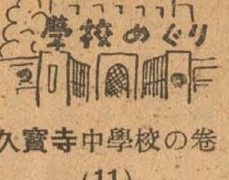 學校めぐり
久寶寺中學校の卷
(11)